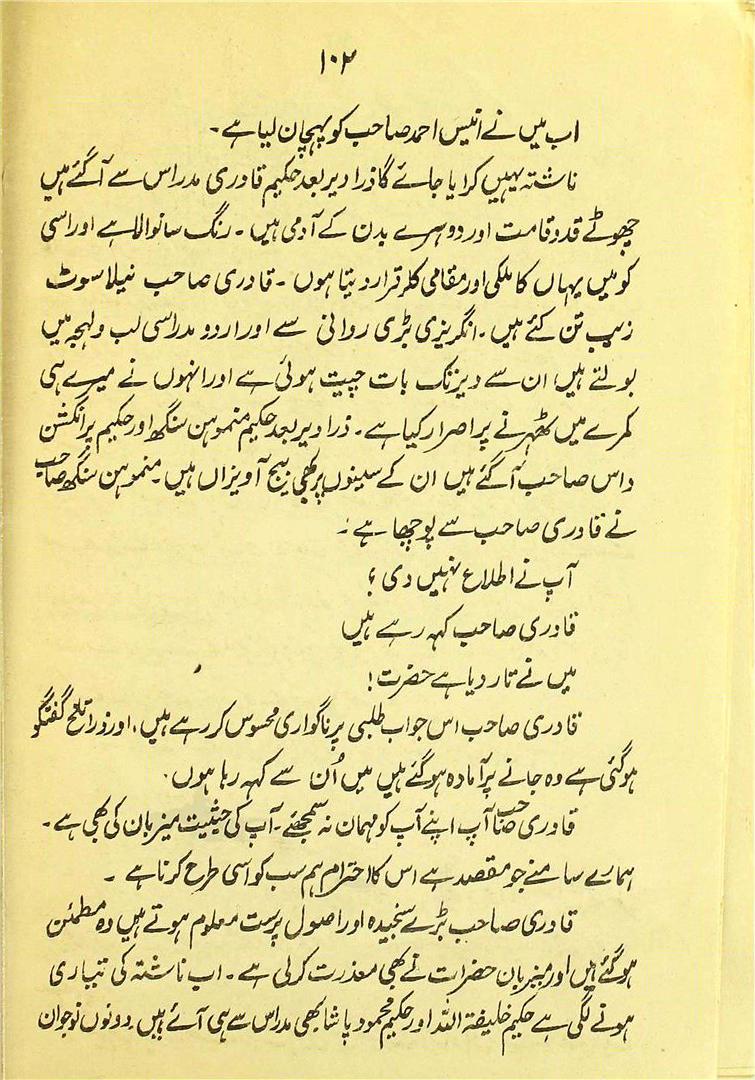 ۱۰۲
اب میں نے انیس احمد صاحب کو پہچان لیا ہے۔
ناشتہ یہیں کرایا جائے گا ذرا دیر بعد حکیم قادری مدراس سے آ گئے ہیں
چھوٹے قد و قامت اور دوہرے بدن کے آدمی ہیں۔ رنگ سانوالا ہے اور اسی
کو میں یہاں کا ملکی اور مقامی کلر قرار دیتا ہوں۔ قادری صاحب نیلا سوٹ
زیب تن کئے ہیں۔ انگریزی بڑی روانی سے اور اردو مدراسی لب و لہجہ میں
بولتے ہیں ان سے دیر تک بات چیت ہوئی ہے اور انہوں نے میرے ہی
کمرے میں ٹھہرنے پر اصرار کیا ہے۔ ذرا دیر بعد حکیم منموہن سنگھ اور حکیم پرانکشن
داس صاحب آ گئے ہیں ان کے سینوں پر بھی بیج آویزاں ہیں۔ منموہن سنگھ صاحب
نے قادری صاحب سے پوچھا ہے۔
آپ نے اطلاع نہیں دی؟
قادری صاحب کہہ رہے ہیں
میں نے تار دیا ہے حضرت!
قادری صاحب اس جواب طلبی پر ناگواری محسوس کر رہے ہیں، اور ذرا تلخ گفتگو
ہو گئی ہے وہ جانے پر آمادہ ہو گئے ہیں میں اُن سے کہہ رہا ہوں۔
قادری صاحب آپ اپنے آپ کو مہمان نہ سمجھئے۔ آپ کی حیثیت میزبان کی بھی ہے۔
ہمارے سامنے جو مقصد ہے اس کا احترام ہم سب کو اسی طرح کرنا ہے۔
قادری صاحب بڑے سنجیدہ اور اصول پرست معلوم ہوتے ہیں وہ مطمئن
ہو گئے ہیں اور میزبان حضرات نے بھی معذرت کر لی ہے۔ اب ناشتہ کی تیاری
ہونے لگی ہے حکیم خلیفۃ اللہ اور حکیم محمود پاشا بھی مدراس سے ہی آئے ہیں دونوں نوجوان